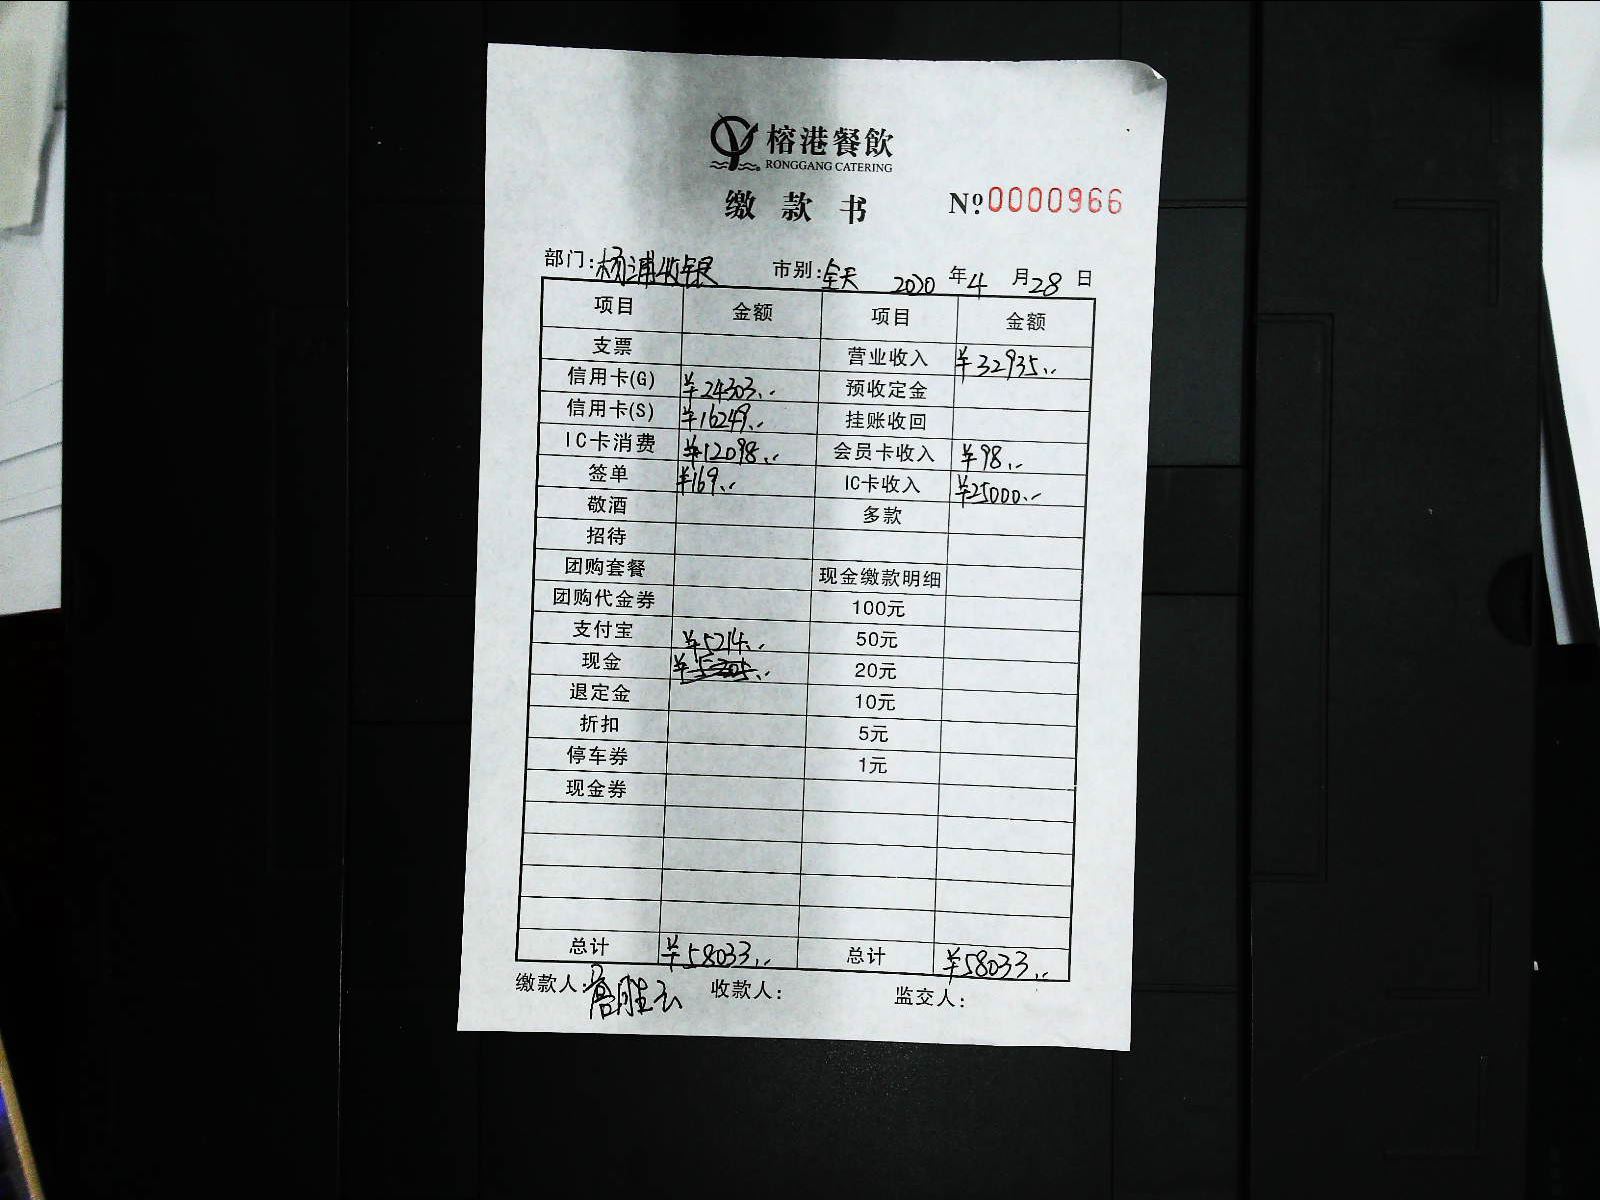 榕港餐飲
RONGGANG CATERING
缴款书 Nº.0000966
部门:杨浦收银 市别:全天 2020年4月28日
项目 金额 项目 金额
支票 营业收入 ¥32935..
信用卡(G) ¥24303.. 预收定金
信用卡(S) ¥16249.. 挂账收回
IC卡消费 ¥12098.. 会员卡收入 ¥98..
签单 ¥169.. IC卡收入 ¥25000..
敬酒 多款
招待
团购套餐 现金缴款明细
团购代金券 100元
支付宝 ¥5214.. 50元
现金 20元
退定金 10元
折扣 5元
停车券 1元
现金券
总计 ¥58033.. 总计 ¥58033..
缴款人: 胜云 收款人: 监交人: